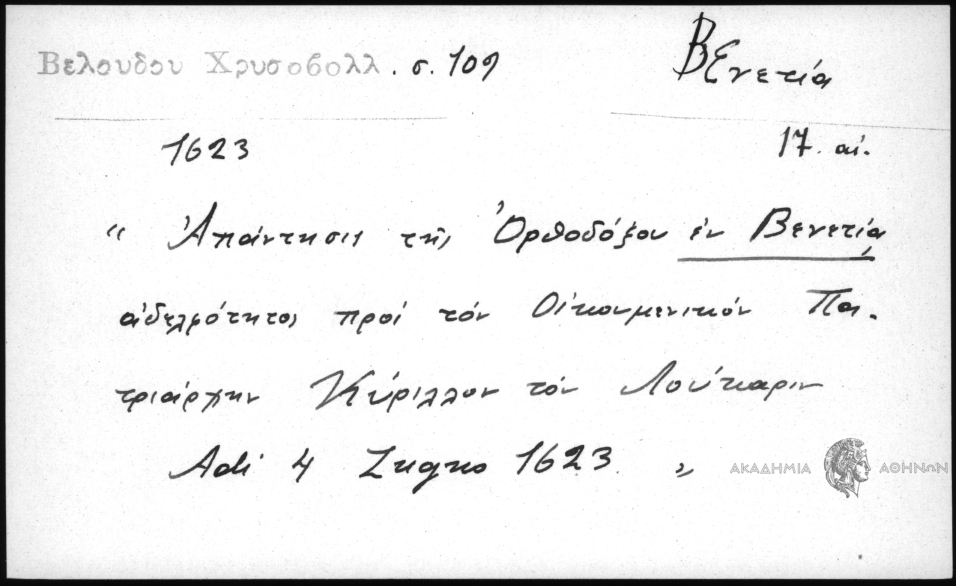 Βελουδου Χρυσοβολλ. σ. 109
Βενετία
1623
17. αἰ.
“ Ἀπάντησις τῆς Ὀρθοδόξου ἐν Βενετίᾳ
ἀδελφότητος πρός τόν Οἰκουμενικόν Πα-
τριάρχην Κύριλλον τόν Λούκαριν
Adi 4 Zugno 1623 ”
ΑΚΑΔΗΜΙΑ ΑΘΗΝΩΝ